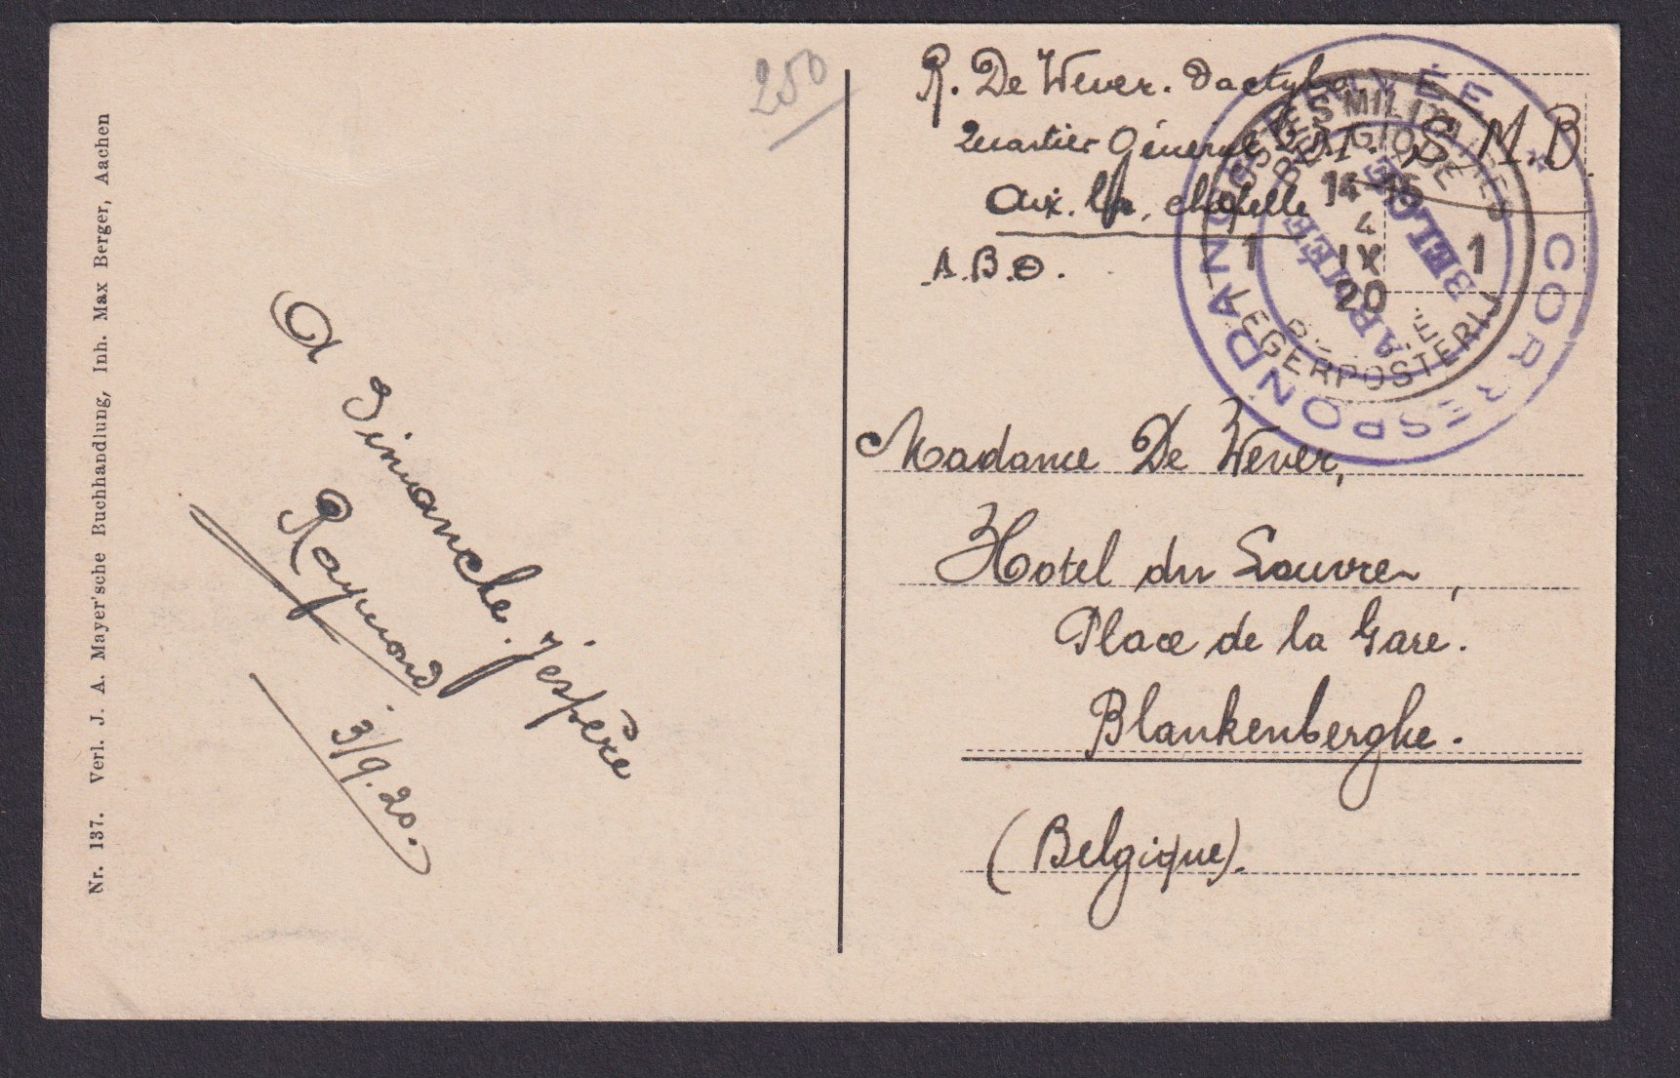 250
R. De Wever. Dactylo
Quartier Général
S.M.B.
Aix. la. chapelle
A.B.O.
CORRESPONDANCE PRIVÉE
ARMÉE BELGE
POSTES MILITAIRES
BELGIQUE
14-15
4
1 IX 1
20
LEGERPOSTERIJ
Madame De Wever,
Hotel du Louvre,
Place de la Gare.
Blankenberghe.
(Belgique).
A Dimanche. j'espère
Raymond
3/9.20.
Nr. 137. Verl. J. A. Mayer'sche Buchhandlung, Inh. Max Berger, Aachen